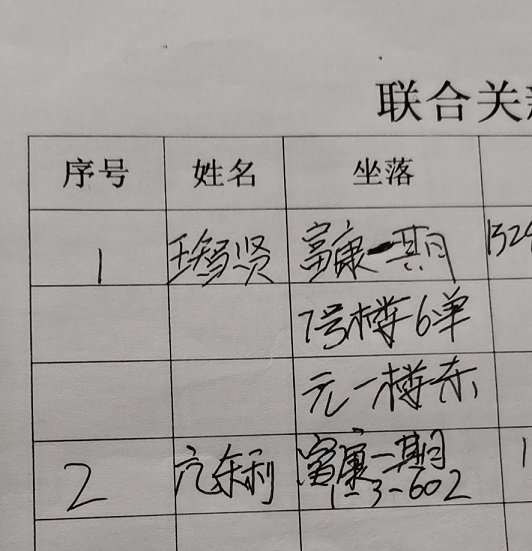 联合关
序号 姓名 坐落
1 王智贤 富康一期 1324
7号楼6单
元一楼东
2 亢东利 富康一期 1
1-3-602